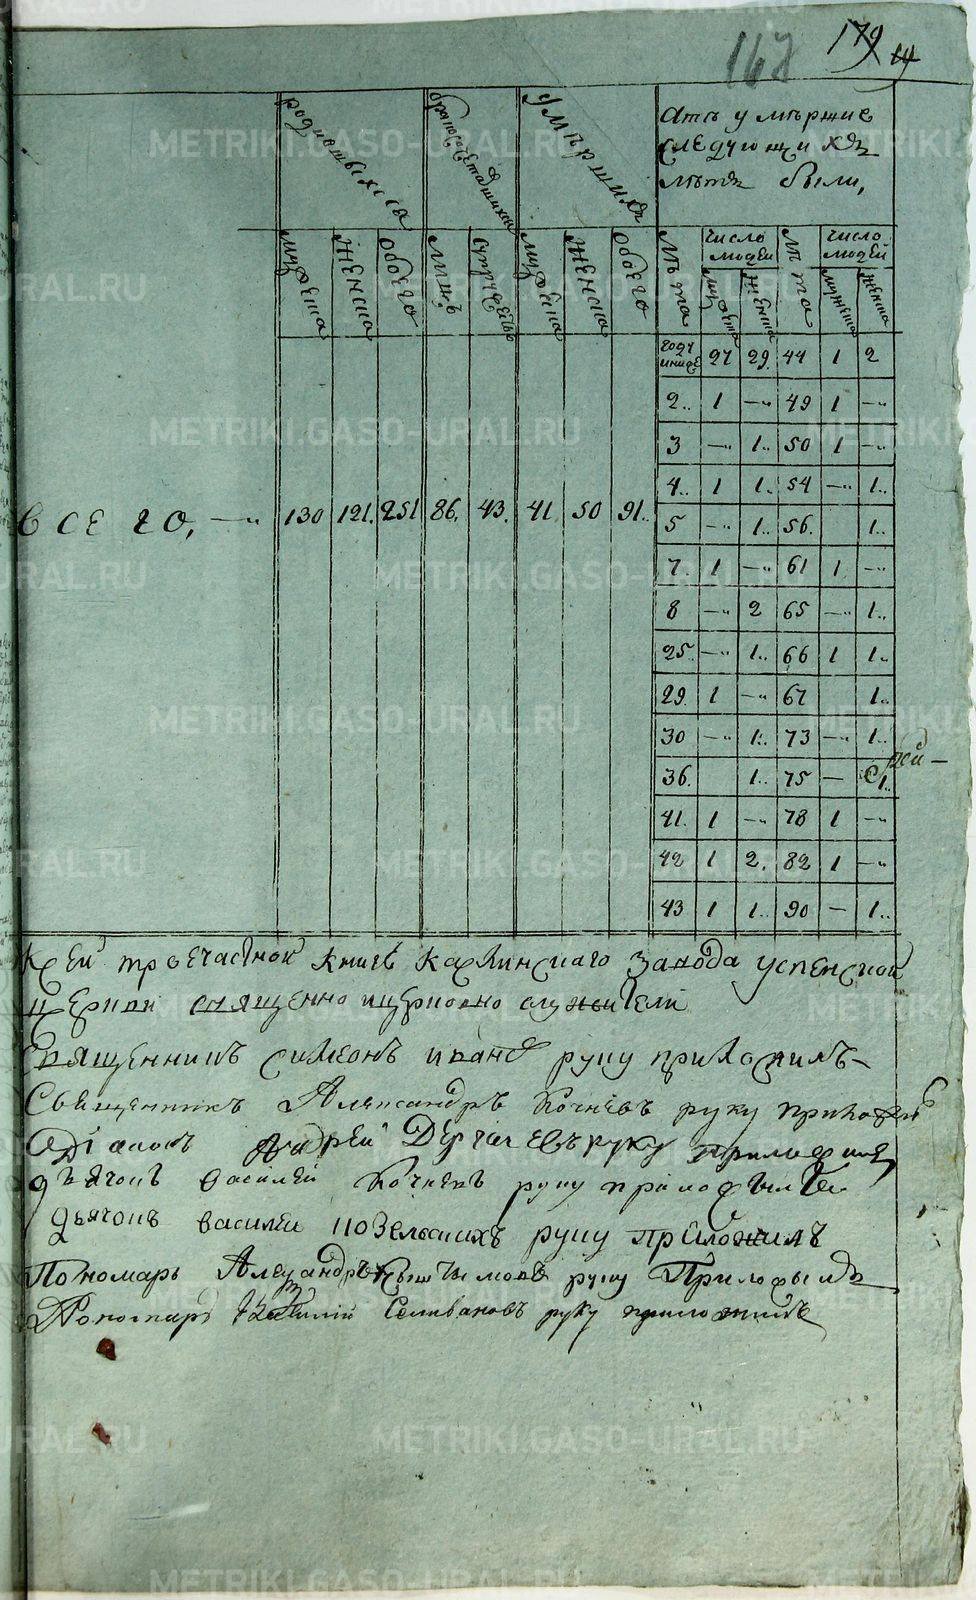 167 179
родившихся
бракосочетавшихся
умершихъ
Атѣ умѣршие
следующихъ
лѣтъ были,
мужеска
женска
обоего
лицъ
супружествъ
мужеска
женска
обоего
Лѣта
число людей
мужеска
женска
Лѣта
число людей
мужеска
женска
году и ниже 27 29. 44 1 2
2.. 1 —„ 49 1 —„
3 —„ 1.. 50 1 —„
4.. 1 1. 54 —„ 1..
всего, —„ 130 121. 251 86. 43. 41 50 91..
5 —„ 1.. 56. 1..
7. 1 —„ 61 1 —„
8 —„ 2 65 —„ 1..
25. —„ 1.. 66 1 1..
29. 1 —„ 67 1..
30 —„ 1.. 73 —„ 1..
36. 1.. 75 — 1..
41. 1 —„ 78 1 —„
42 1 2. 82 1 —„
43 1 1.. 90 — 1..
К сей троечастной книгѣ Каслинскаго завода успенской
церкви священно и церковно служители
Священникъ Симеонъ Ивановъ руку приложилъ
Священникъ Александръ Кочневъ руку приложилъ
Дiаконъ Андрей Дергачевъ руку приложилъ
дьячокъ Василей Кочневъ руку приложылъ
Дьячокъ василеи козельскихъ руку приложилъ
Пономарь Александръ руку Приложылъ
Пономарь Селивановъ руку приложилъ
METRIKI.GASO-URAL.RU